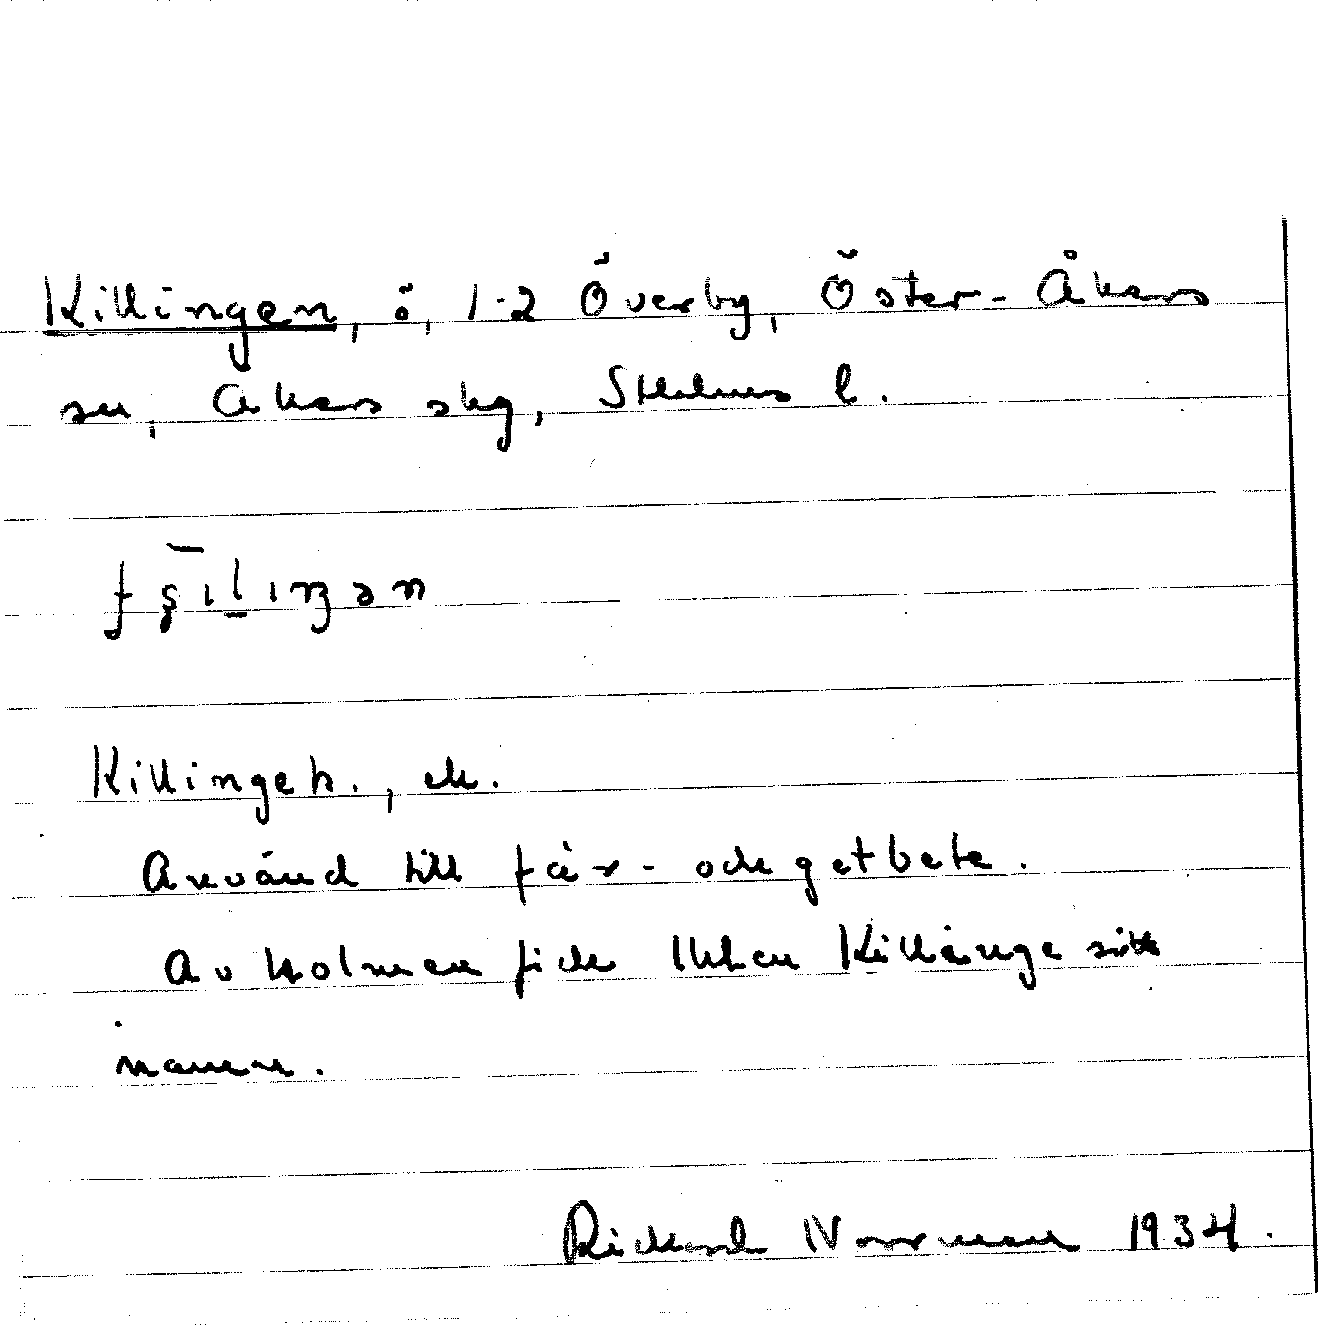 Killingen, ö, 1-2 Överby, Öster-Åkers
sn, Åkers skg, Sthlms l.
Killingeh., ek.
Använd till får- och getbete.
Av holmen fick Killinge sitt
namn.
Rickard Norrman 1934.